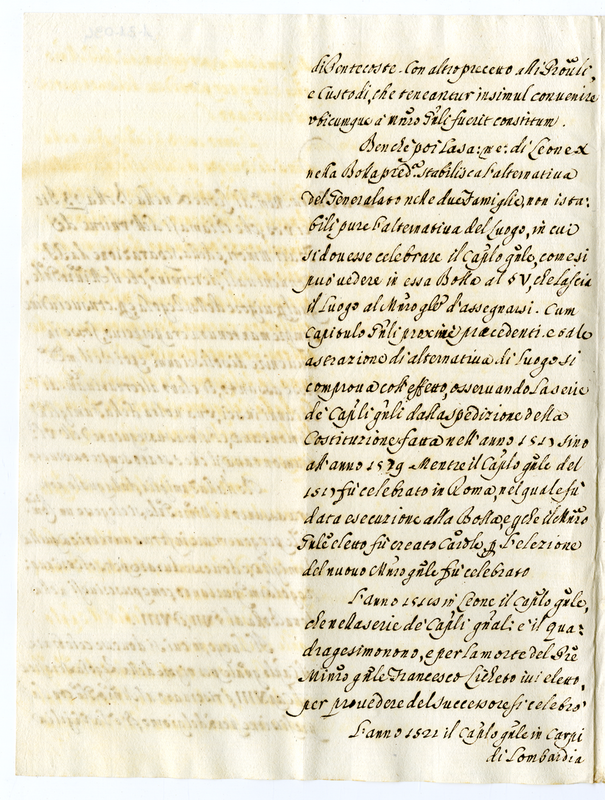 di Pentecoste. Con altro precetto alli Prouli,
e Custodi, che teneantur insimul convenire
vbicumque à Mñro Gñli fuerit constitum.
Benche poi La sa: me: di Leone X
nella Bolla pred.ª stabilisca l'alternativa
del Generalato nelle due Famiglie, non ista:
bilì pure l'alternativa del Luogo, in cui
si douesse celebrare il Capĩlo gñle, come si
può vedere in essa Bolla al § V, che lascia
il Luogo al Mñro gñle d'assegnarsi. Cum
Capitulo Gñli proxime præcedenti. e tale
aserazione di alternativa di Luogo si
comprova coll'effetto, osservando La serie
de Capĩli gñli dalla spedizione della
Costituzione fatta nell'anno 1517 sino
all'anno 1579 Mentre il Capĩlo gñle del
1517 fù celebrato in Roma, nel quale fù
data esecuzione alla Bolla, e che il Mñro
Gñle eletto fù creato Cardle, p l'elezione
del nuovo Mñro gñle fù celebrato
L'anno 1518 in Leone il Capĩlo gñle,
che nella serie de Capĩli gñali è il Qua:
dragesimonono, e per la morte del Pre
Minrõ gñle Francesco Licheto iui eletto,
per prouedere del successore si celebrò
L'anno 1521 il Capĩlo gñle in Carpi
di Lombardia